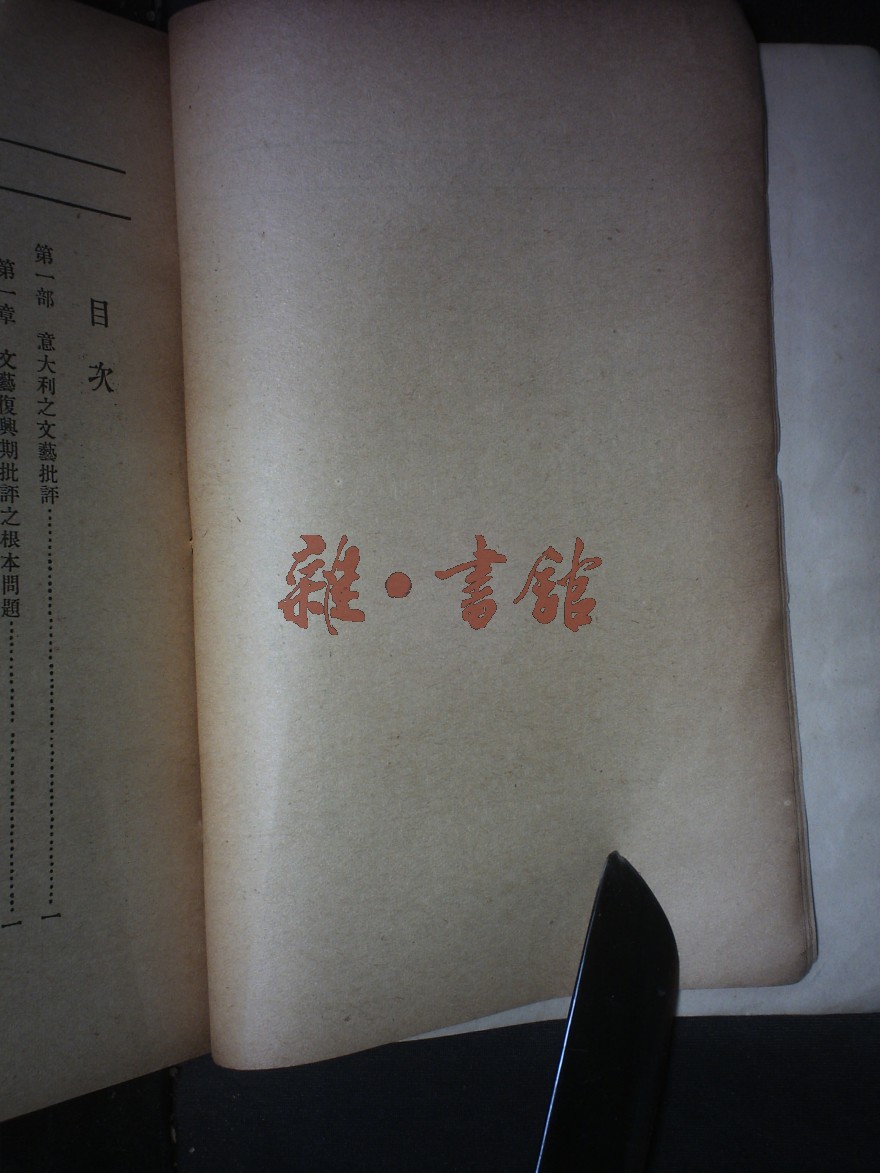 雜·書館
目次
第一部　意大利之文藝批評……………………………一
第一章　文藝復興期批評之根本問題……………………一